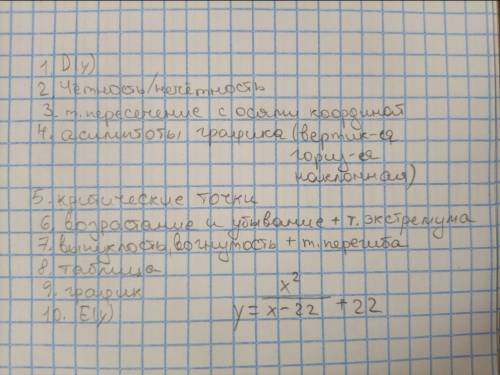 1. D(y)
2. Чётность/нечётность
3. т. пересечение с осями координат
4. асимптоты графика (вертик-ая
гориз-ая
наклонная)
5. критические точки
6. возрастание и убывание + т. экстремума
7. выпуклость, вогнутость + т. перегиба
8. таблица
9. график
10. E(y)
y = x²/(x-22) + 22